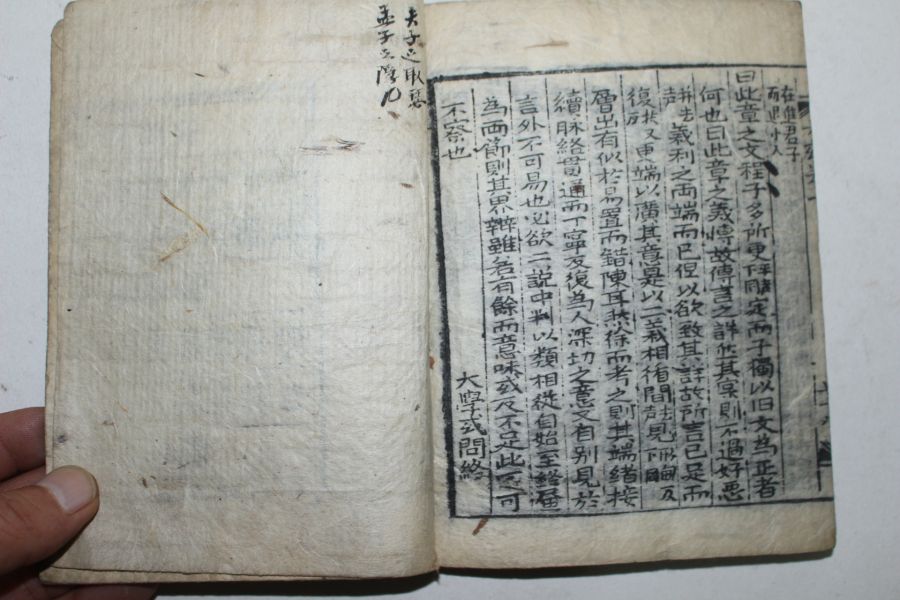 在進君子
而退小人
曰此章之文程子多所更定而子獨以旧文為正者
何也曰此章之義博故傳言之詳然其实則不過好悪
義利之両端而已但以欲致其詳故所言已足而
復更端以廣其意是以二義相循間見
層出有似於易置而錯陳耳然徐而考之則其端緒接
續脉絡貫通而丁寧反復為人深切之意又自別見於
言外不可易也必欲二說中判以類相從自始至終画
為両節則其界辨雖若有餘而意味或反不足此不可
不察也
大學或問終
夫子之取瑟
孟子之隱几